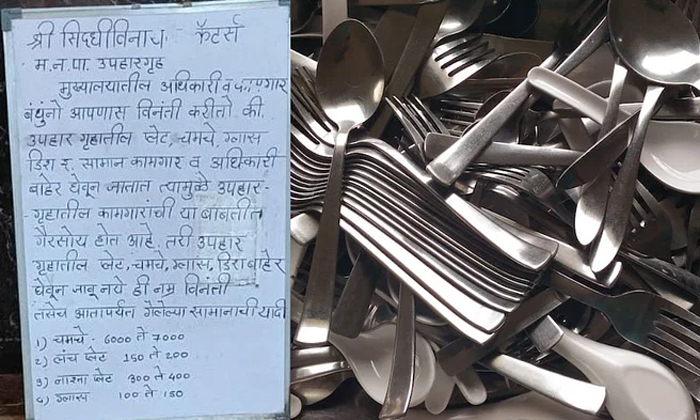 श्री सिद्धीविनायक कॅटर्स
म.न.पा. उपहारगृह
मुख्यालयातील अधिकारी व कामगार
बंधुंनो आपणास विनंती करीतो की,
उपहार गृहातील प्लेट, चमचे, ग्लास
डिश इ. सामान कामगार व अधिकारी
बाहेर घेवून जातात त्यामुळे उपहार-
-गृहातील कामगारांची या बाबतीत
गैरसोय होत आहे. तरी उपहार
गृहातील प्लेट, चमचे, ग्लास, डिश बाहेर
घेवून जावू नये ही नम्र विनंती
तसेच आतापर्यंत गेलेल्या सामानाची यादी
१) चमचे - 6000 ते 7000
२) लंच प्लेट 150 ते 200
३) नाश्ता प्लेट 300 ते 400
४) ग्लास 100 ते 150